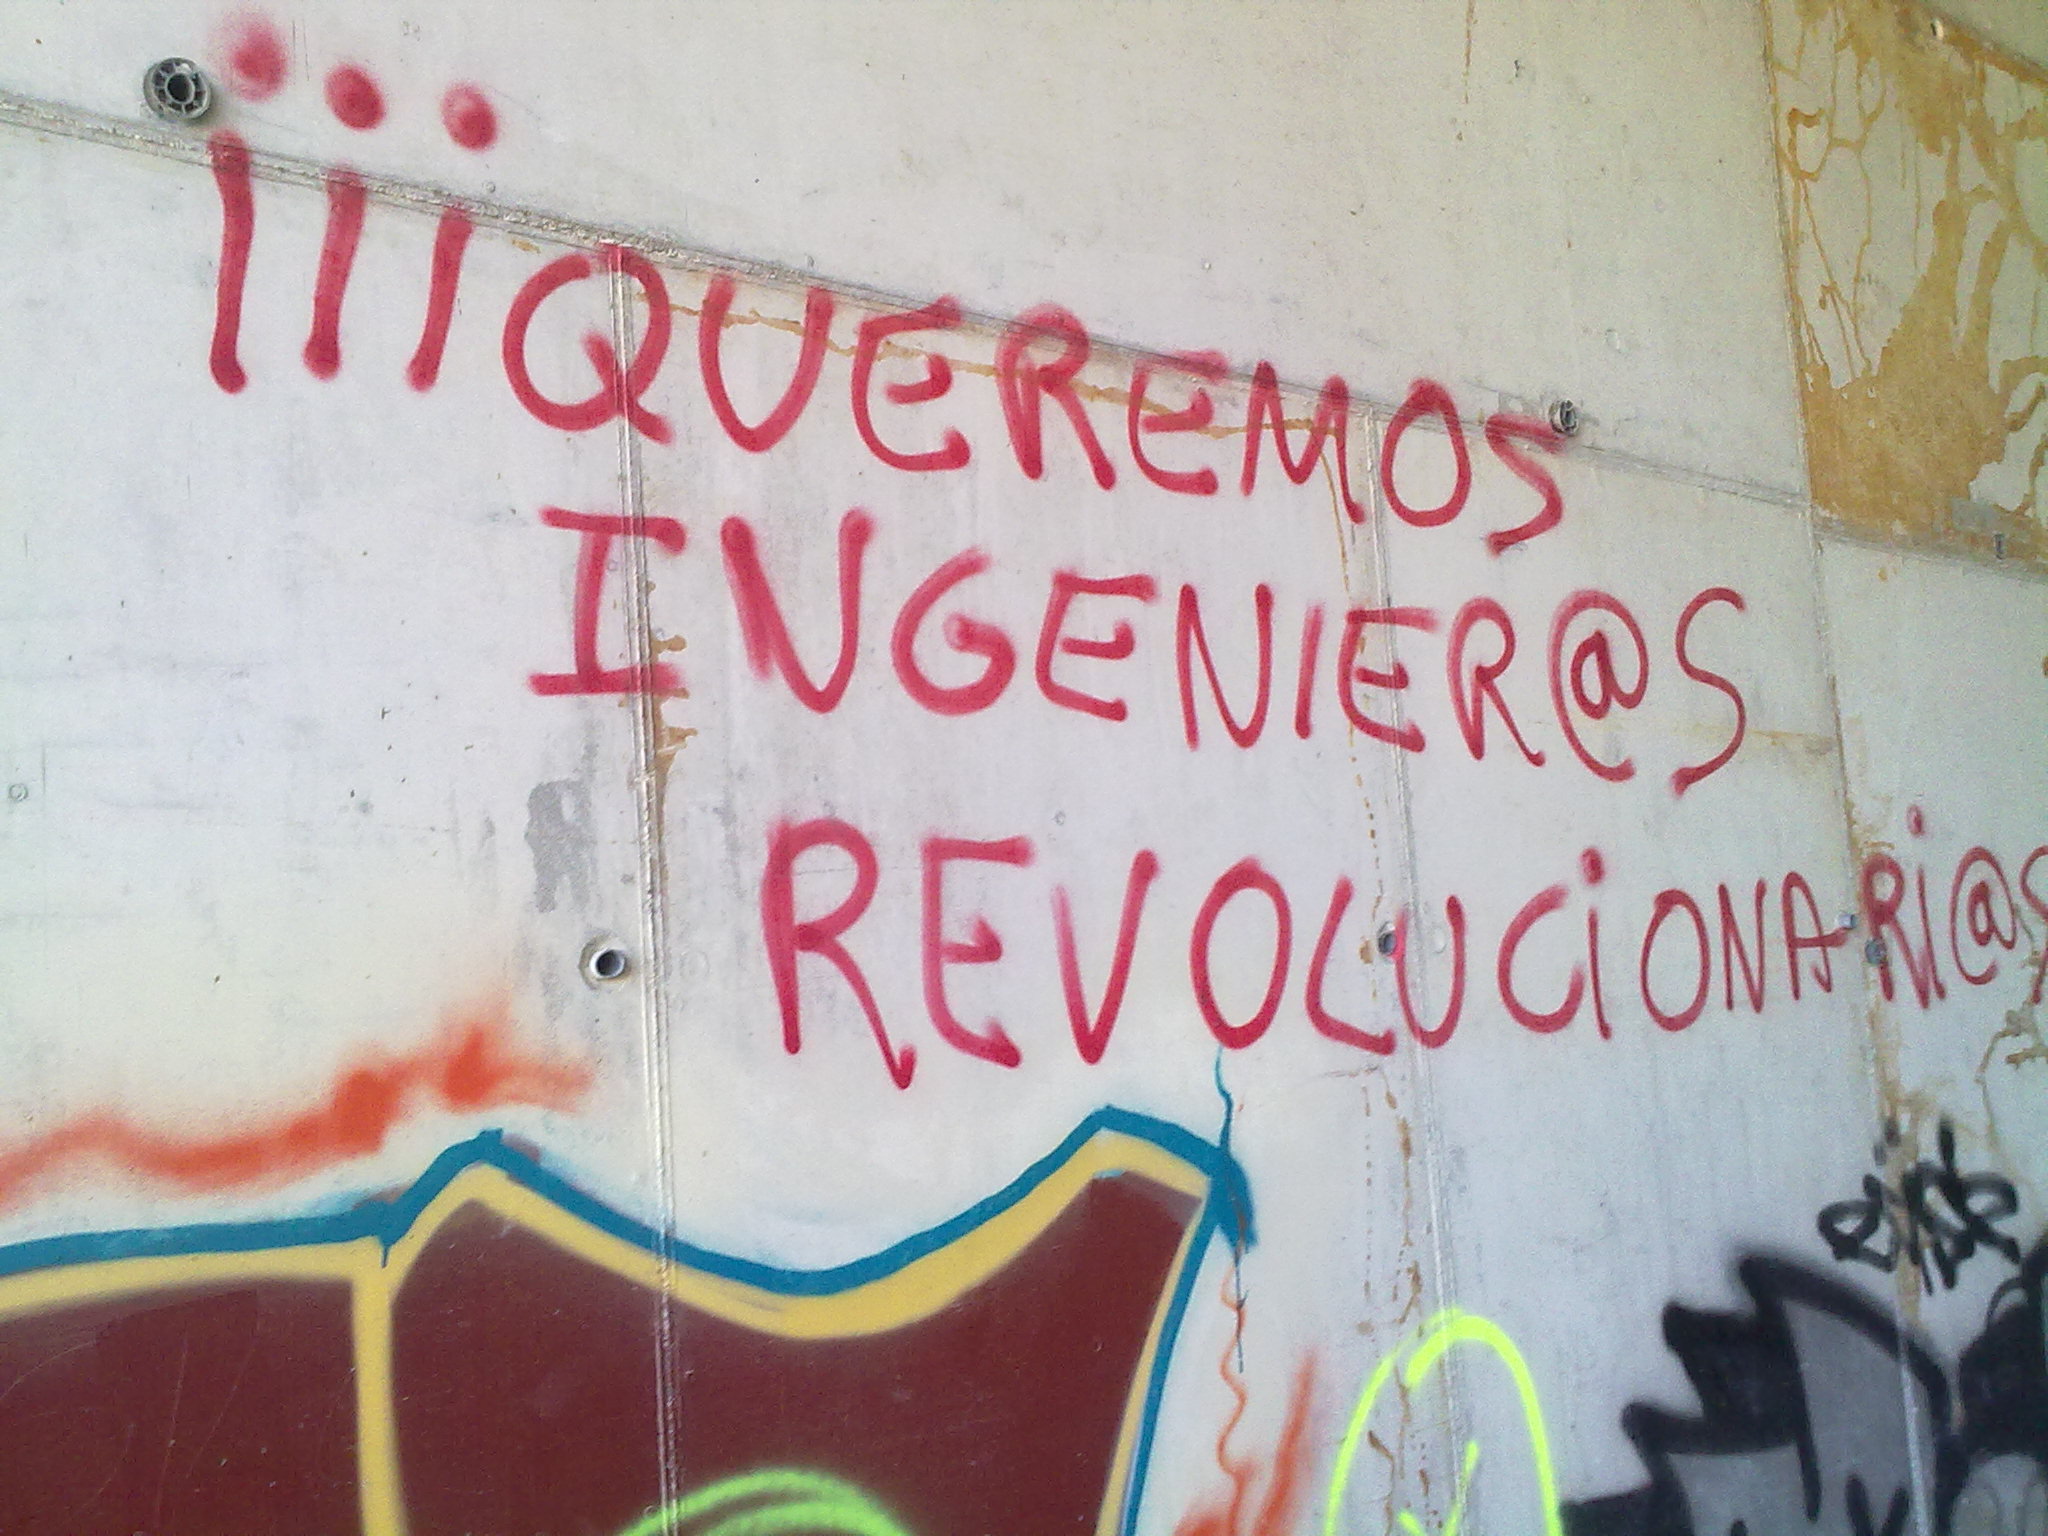 ¡¡¡QUEREMOS
INGENIER@S
REVOLUCIONARI@S